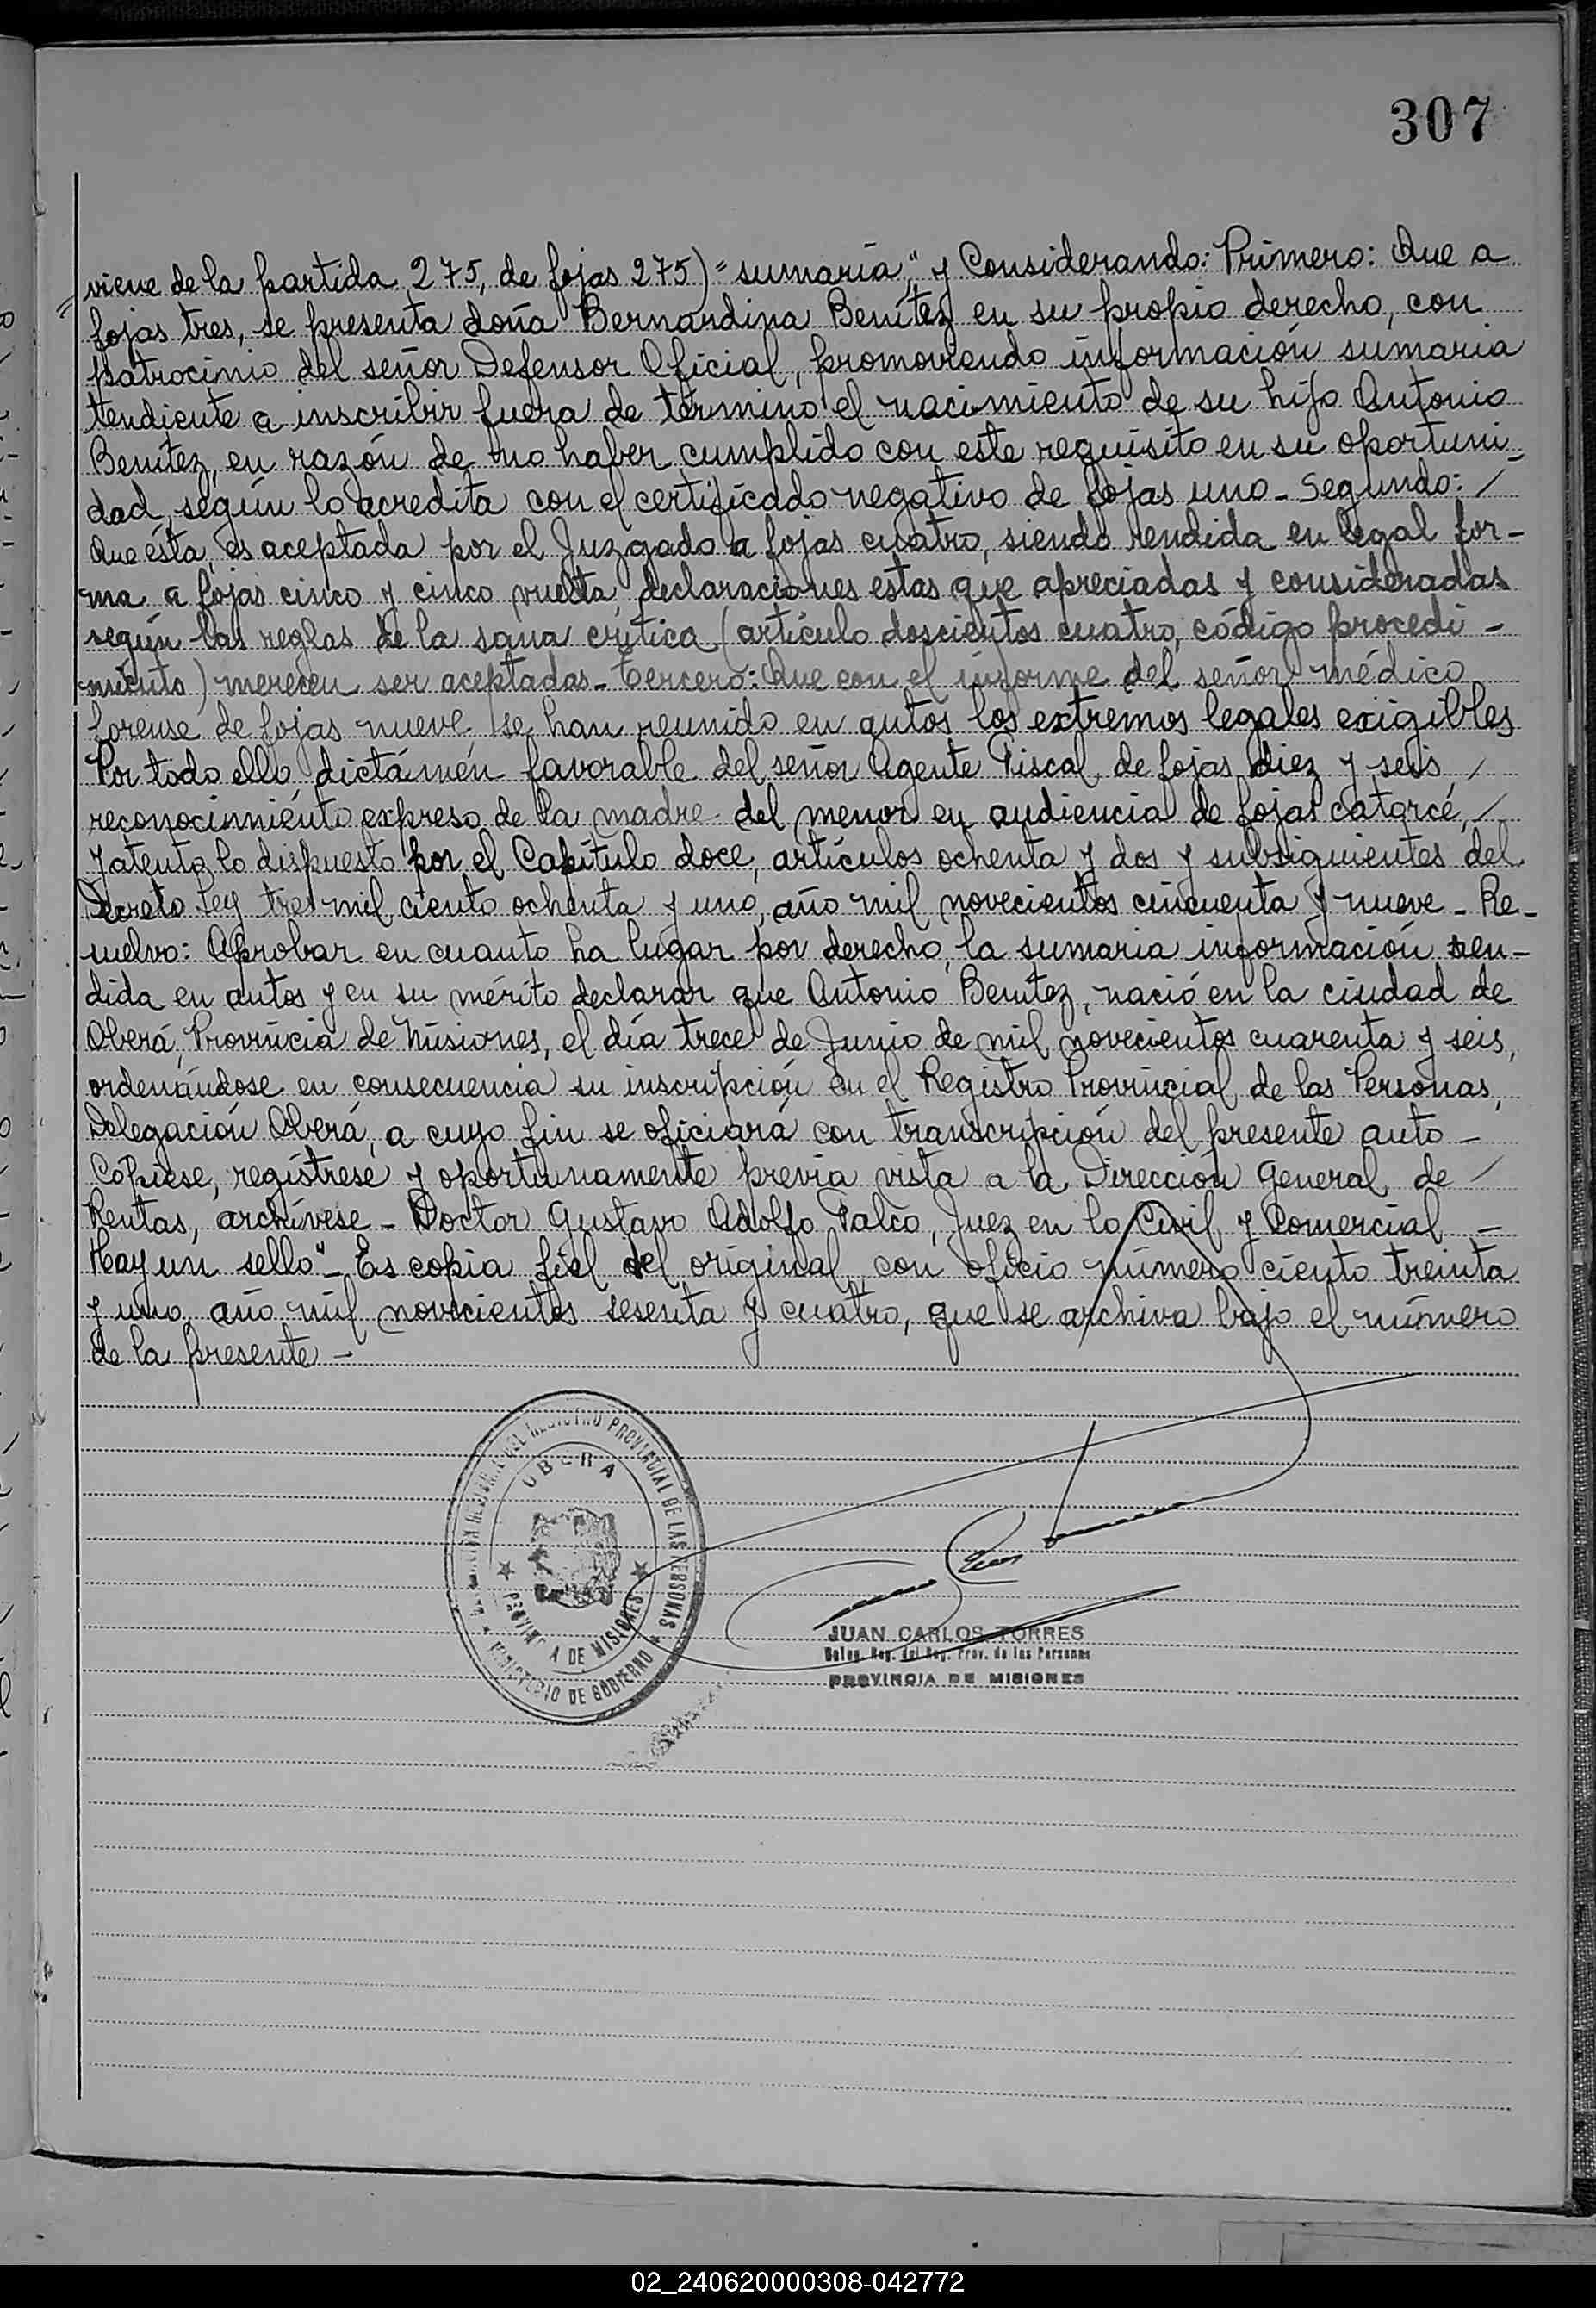 307
viene de la partida 275, de fojas 275) = sumaria," y Considerando: Primero: Que a
fojas tres, se presenta doña Bernardina Benítez en su propio derecho, con
patrocinio del señor Defensor Oficial, promoviendo información sumaria
tendiente a inscribir fuera de término el nacimiento de su hijo Antonio
Benítez, en razón de no haber cumplido con este requisito en su oportuni-
dad, según lo acredita con el certificado negativo de fojas uno - Segundo: /
Que ésta, es aceptada por el Juzgado a fojas cuatro, siendo rendida en legal for-
ma a fojas cinco y cinco vuelta, declaraciones estas que apreciadas y consideradas
según las reglas de la sana crítica (artículo doscientos cuatro, código procedi-
miento) merecen ser aceptadas - Tercero: Que con el informe del señor médico
forense de fojas nueve, se han reunido en autos los extremos legales exigibles
Por todo ello, dictámen favorable del señor Agente Fiscal de fojas diez y seis /
reconocimiento expreso de la madre del menor en audiencia de fojas catorcé, /
y atento lo dispuesto por el Capítulo doce, artículos ochenta y dos y subsiguientes del
Decreto Ley tres mil ciento ochenta y uno, año mil novecientos cincuenta y nueve - Re-
suelvo: Aprobar en cuanto ha lugar por derecho, la sumaria información ren-
dida en autos y en su mérito declarar que Antonio Benítez, nació en la ciudad de
Oberá, Provincia de Misiones, el día trece de Junio de mil novecientos cuarenta y seis,
ordenándose en consecuencia su inscripción en el Registro Provincial de las Personas,
Delegación Oberá, a cuyo fin se oficiará con transcripción del presente auto -
Cópiese, regístrese y oportunamente previa vista a la Dirección General de /
Rentas, archívese - Doctor Gustavo Adolfo Palco, Juez en lo Civil y Comercial -
Hay un sello" - Es copia fiel del original, con oficio número ciento treinta
y uno, año mil novecientos sesenta y cuatro, que se archiva bajo el número
de la presente -
DEL REGISTRO PROVINCIAL DE LAS PERSONAS
OBERA
PROVINCIA DE MISIONES
MINISTERIO DE GOBIERNO
JUAN CARLOS TORRES
Deleg. Reg. del Reg. Prov. de las Personas
PROVINCIA DE MISIONES
02_240620000308-042772